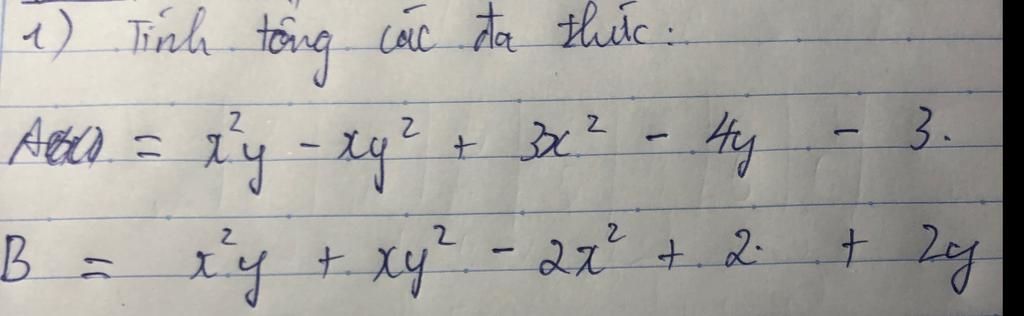 1) Tính tổng các đa thức:
A = x²y - xy² + 3x² - 4y - 3.
B = x²y + xy² - 2x² + 2. + 2y